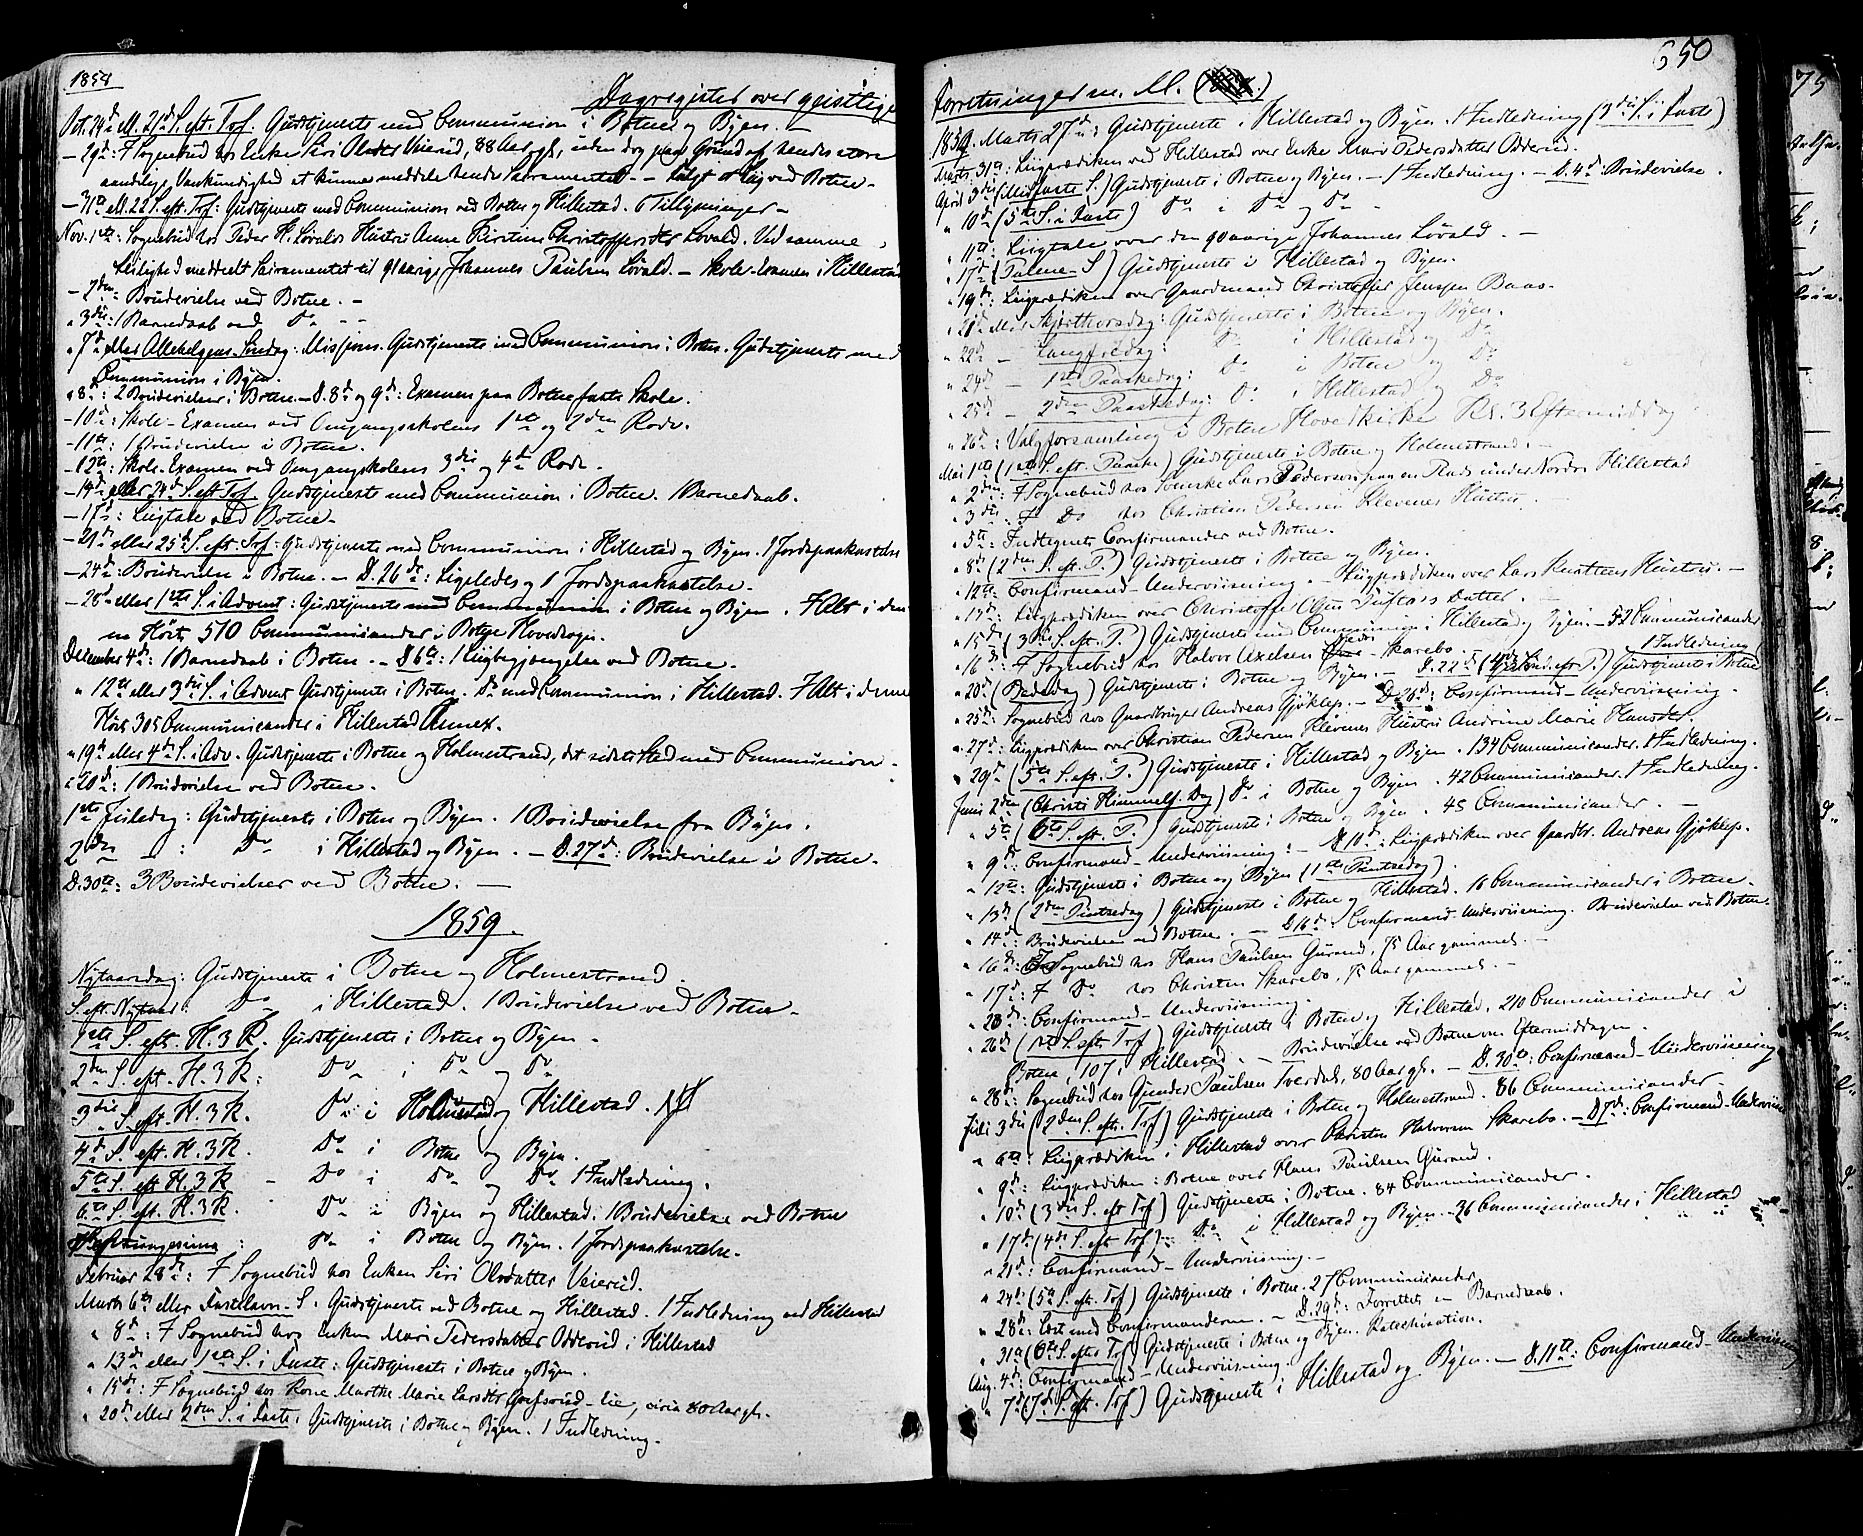 1858
Dagregister over geistlige
Oct. 24d: ell. 21d S. eft. Tref. Gudstjeneste med Communion i Botne og Byen. —
— 29d: F Sognebud hos Enke Siri Olsdatter Veierud, 88 Aar gl., uden dog paa Grund af hendes store
aandelige Vankundighed at kunne meddele hende Sacramentet. — Ligt ved Botne.
— 31te ell. 22 S. eft. Tref: Gudstjeneste med Communion ved Botne og Hillestad. 6 Tillysninger —
Nov. 1ste: Sognebud hos Peder H. Løvalds Hustru Anne Kirstine Christoffersdtr Løvald. Ved samme
Leilighed meddeelt Sacramentet til 91 aarige Johannes Paulsen Løvald. — Skole-Examen i Hillestad
— 2den: Brudevielse ved Botne. —
" 3die: 1 Barnedaab ved Do — —
" 7d eller Allehelgens-Søndag: Missions-Gudstjeneste med Communion i Botne. Gudstjeneste med
Communion i Byen.
" 8d: 2 Brudevielser i Botne. — D. 8d og 9d: Examen paa Botne faste Skole.
— 10d: Skole-Examen ved Omgangsskolens 1ste og 2den Rode.
— 11te: 1 Brudevielse i Botne.
— 12te: Skole-Examen ved Omgangsskolens 3die og 4d Rode.
— 14d eller 24d S. eft Tref. Gudstjeneste med Communion i Botne. 1 Barnedaab.
— 17d: Liigtale ved Botne.
— 21d eller 25d S. eft. Tref: Gudstjeneste med Communion i Hillestad og Byen. 1 Jordspaakastelse
— 24d: Brudevielse i Botne. — D. 26d: Ligeledes og 1 Jordspaakastelse.
— 28d eller 1ste S. i Advent: Gudstjeneste med Communion i Botne og Byen. I Alt i den
ne Høst 510 Communicander i Botne Hovedsogn.
December 4d: 1 Barnedaab i Botne. — D. 6te: 1 Liigbegjængelse ved Botne.
" 12te eller 3die S. i Advent Gudstjeneste i Botne. Do med Communion i Hillestad. I Alt i denne
Høst 305 Communicander i Hillestad Annex.
" 19d eller 4d S. i Adv. Gudstjeneste i Botne og Holmestrand, det sidste Sted med Communion.
" 20d: 1 Brudevielse ved Botne.
1ste Juledag: Gudstjeneste i Botne og Byen. 1 Brudevielse fra Byen.
2den — : Do i Hillestad og Byen. — D. 27d: Brudevielse i Botne.
D. 30te: 3 Brudevielser ved Botne. —
1859.
Nytaarsdag: Gudstjeneste i Botne og Holmestrand.
S. eft. Nytaar: Do i Hillestad. 1 Brudevielse ved Botne.
1ste S. eft. H. 3 K. Gudstjeneste i Botne og Byen.
2den S. eft. H. 3 K: Do i Do og Do
3die S. eft. H. 3 K. Do i Holmestrand og Hillestad.
4d S. eft. H. 3 K. Do i Botne og Byen.
5te S. eft H. 3 K — Do i Do og Do 1 Indledning.
6te S. eft. H. 3 K. Do i Byen og Hillestad. 1 Brudevielse ved Botne
Septuagesima: Do i Botne og Byen. 1 Jordspaakastelse.
Februar 28d: F Sognebud hos Enken Siri Olsdatter Veierud.
Marts 6te eller Fastelavn-S. Gudstjeneste ved Botne og Hillestad. 1 Indledning ved Hillestad
" 8d: F Sognebud hos Enken Mari Pedersdatter Odderud i Hillestad
" 13d eller 1ste S. i Faste: Gudstjeneste i Botne og Byen.
" 15d: F Sognebud hos Kone Marthe Marie Larsdtr -lie, circa 80 Aar gl.
" 20d eller 2den S. i Faste: Gudstjeneste i Botne og Byen. 1 Indledning.
650
Forretninger m. M.
1859. Marts 27d: Gudstjeneste i Hillestad og Byen. 1 Indledning (3die S. i Faste)
Marts 31te: Liigprædiken ved Hillestad over Enke Mari Pedersdatter Odderud.
April 3die (Midfaste S.) Gudstjeneste i Botne og Byen. — 1 Indledning. — D. 4d: Brudevielse.
" 10d (5te S. i Faste) Do i Do og Do —
" 11te: Liigtale over den 90 aarige Johannes Løvald. —
" 17d (Palme-S) Gudstjeneste i Hillestad og Byen.
" 19d: Liigprædiken over Gaardmand Christoffer Jenssen Baas.
" 21d eller Skjærthorsdag: Gudstjeneste i Botne og Byen.
" 22d — Langfredag: Do i Hillestad og Do
" 24d — 1ste Paaskedag: Do i Botne og Do
" 25d — 2den Paaskedag: Do i Hillestad og Do
" 26d: Valgforsamling i Botne Hovedkirke Kl. 3 Eftermiddag
Mai 1ste (1ste S. eft. Paaske) Gudstjeneste i Botne og Holmestrand. —
" 2den: F Sognebud hos Svenske Lars Pederson paa en Plads under Nordre Hillestad
" 3die: F Do hos Christian Pedersen Klevenes Hustru.
" 5te: Indtegnet Confirmander ved Botne.
" 8d (2den S. eft. P.) Gudstjeneste i Botne og Byen.
" 12te: Confirmand-Underviisning. — Liigprædiken over Lars Knutsens Hustru. —
" 13d: Liigprædiken over Christoffer Olsens Datter. —
" 15d (3die S. eft. P.) Gudstjeneste med Communion i Hillestad og Byen. — 52 Communicander
1 Indledning
" 16d: F Sognebud hos Halvor Axelsen Skarebo. — D. 22d (4d S. eft P.) Gudstjeneste i Botne
" 20d (Bededag) Gudstjeneste i Botne og Byen. —
" 25d: Sognebud hos Gaardbruger Andreas Gjøklep. — D. 26d: Confirmand-Underviisning.
" 27d: Liigprædiken over Christian Pedersen Klevenes Hustru Andrine Marie Hansdtr.
" 29d (5te S. eft. P.) Gudstjeneste i Hillestad og Byen. 134 Communicander. 1 Indledning.
Juni 2den (Christi Himmelf. Dag) Do i Botne og Byen. 42 Communicander. 1 Indledning.
" 5te (6te S. eft. P.) Gudstjeneste i Botne og Byen. 45 Communicander. —
" 9d: Confirmand-Underviisning. — D. 10d: Liigprædiken over Gaardbr. Andreas Gjøklep.
" 12te: Gudstjeneste i Botne og Byen (1ste Pintsedag).
" 13d (2den Pintsedag) Gudstjeneste i Botne og Hillestad. 16 Communicander i Botne.
" 14d: Brudevielse ved Botne. — D. 16d: Confirmand-Underviisning. Brudevielse ved Botne.
" 16d: F Sognebud hos Hans Paulsen Gurand, 75 Aar gammel. —
" 17d: F Do hos Christen Skarebo, 75 Aar gammel. —
" 23d: Confirmand-Underviisning.
" 26d (1ste S. eft Tref) Gudstjeneste i Botne og Hillestad, 210 Communicander i
Botne, 107 i Hillestad. — Brudevielse ved Botne om Eftermiddagen.
" 28d: Sognebud hos Gunder Paulsen Tverdal, 80 Aar gl. — D. 30te: Confirmand-Underviisning
Juli 3die (2den S. eft. Tref) Gudstjeneste i Botne og Holmestrand. 86 Communicander —
" 6te: Liigprædiken i Hillestad over Christen Halvorsen Skarebo. — D. 7d: Confirmand-Underviisn.
" 9d: Liigprædiken i Botne over Hans Paulsen Gurand.
" 10d (3die S. eft Tref) Gudstjeneste i Botne. 84 Communicander.
" 17d (4d S. eft Tref) — Do i Hillestad og Byen. 36 Communicander i Hillestad
" 21d: Confirmand-Underviisning. —
" 24d: (5te S. eft. Tref) Gudstjeneste i Botne. 27 Communicander
" 28d: Læst med Confirmanderne. — D. 29d: Forrettet en Barnedaab.
" 31te (6te S. efter Tref) Gudstjeneste i Botne og Byen. Katechisation.
Aug. 4d: Confirmand-Underviisning.
" 7d (7d S. eft. Tref) Gudstjeneste i Hillestad og Byen. — D. 11te: Confirmand-Underviisning
75